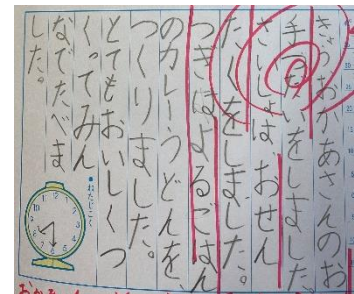 きょうおかあさんのお
手つだいをしました。
さいしょは おせん
たくをしました。
つぎはよるごはん
のカレーうどんを、
つくりました。
とてもおいしくつ
くってみん
なでたべま
した。
●ねたじこく